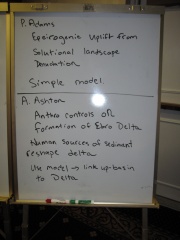 P. Adams
Epeirogenic Uplift from
Solutional landscape
Denudation
Simple model.
A. Ashton
Anthro controls on
formation of Ebro Delta
Human sources of sediment
reshape delta
Use model → link up basin
to Delta